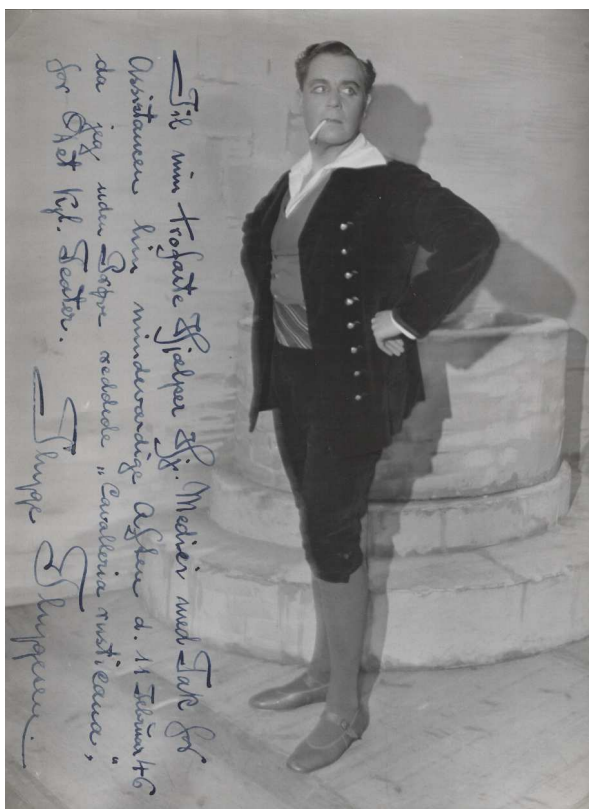 Til min trofaste Hjælper Hj. Medici med Tak for
Assistancen hin mindeværdige Aften d. 11 Februar 46
da jeg uden Prøve reddede „Cavalleria rusticana",
for Det kgl. Teater.
Thyge Thygesen.